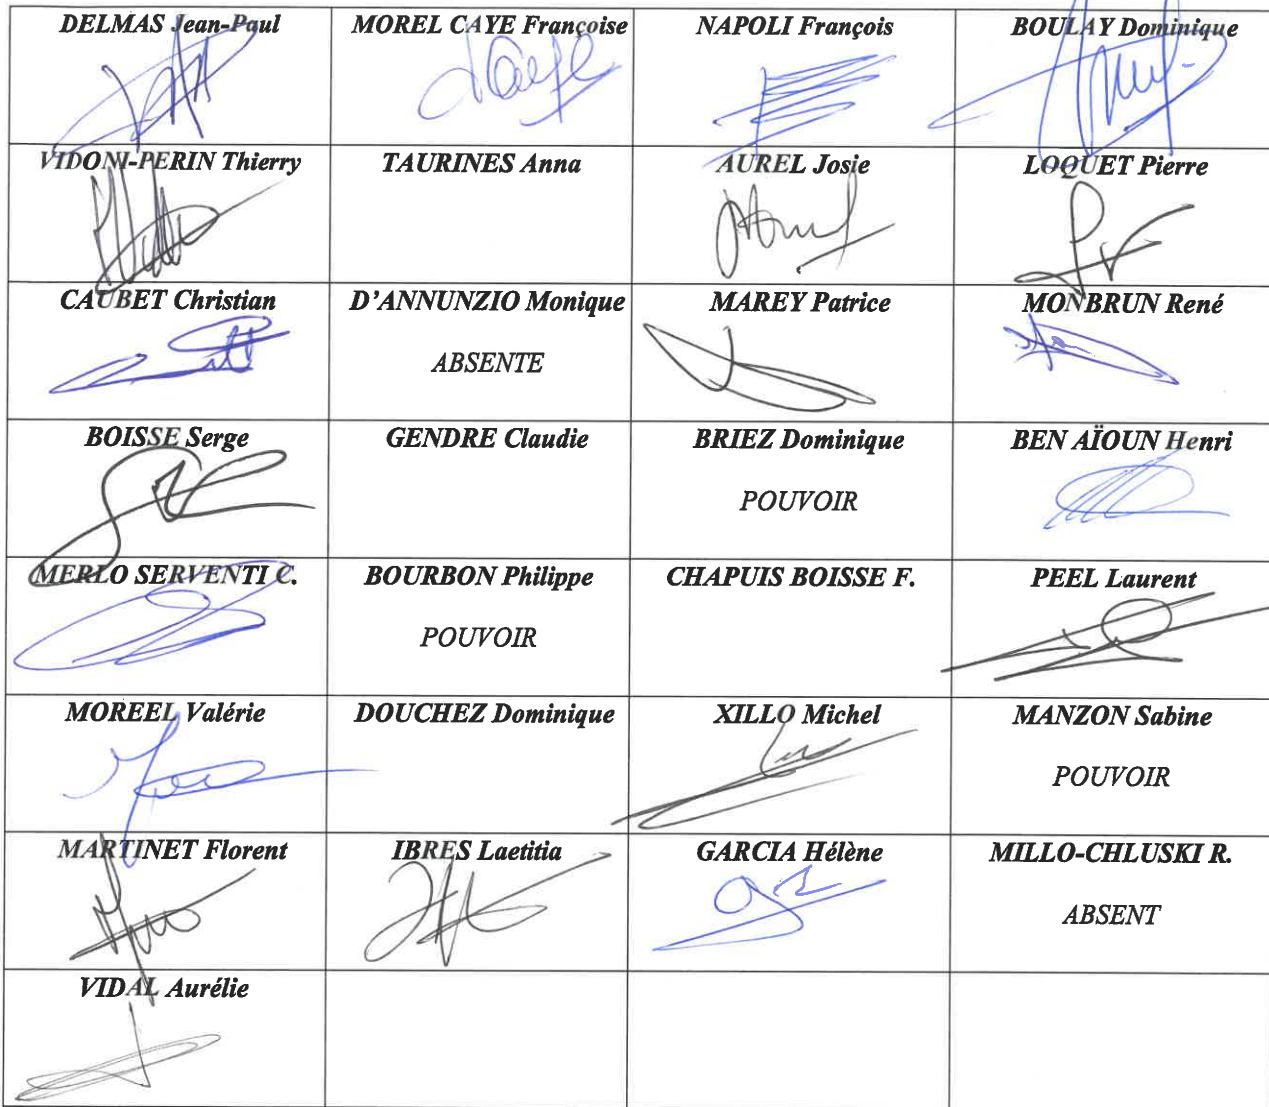 DELMAS Jean-Paul
MOREL CAYE Françoise
NAPOLI François
BOULAY Dominique
VIDONI-PERIN Thierry
TAURINES Anna
AUREL Josie
LOQUET Pierre
CAUBET Christian
D'ANNUNZIO Monique
ABSENTE
MAREY Patrice
MONBRUN René
BOISSE Serge
GENDRE Claudie
BRIEZ Dominique
POUVOIR
BEN AÏOUN Henri
MERLO SERVENTI C.
BOURBON Philippe
POUVOIR
CHAPUIS BOISSE F.
PEEL Laurent
MOREEL Valérie
DOUCHEZ Dominique
XILLO Michel
MANZON Sabine
POUVOIR
MARTINET Florent
IBRES Laetitia
GARCIA Hélène
MILLO-CHLUSKI R.
ABSENT
VIDAL Aurélie